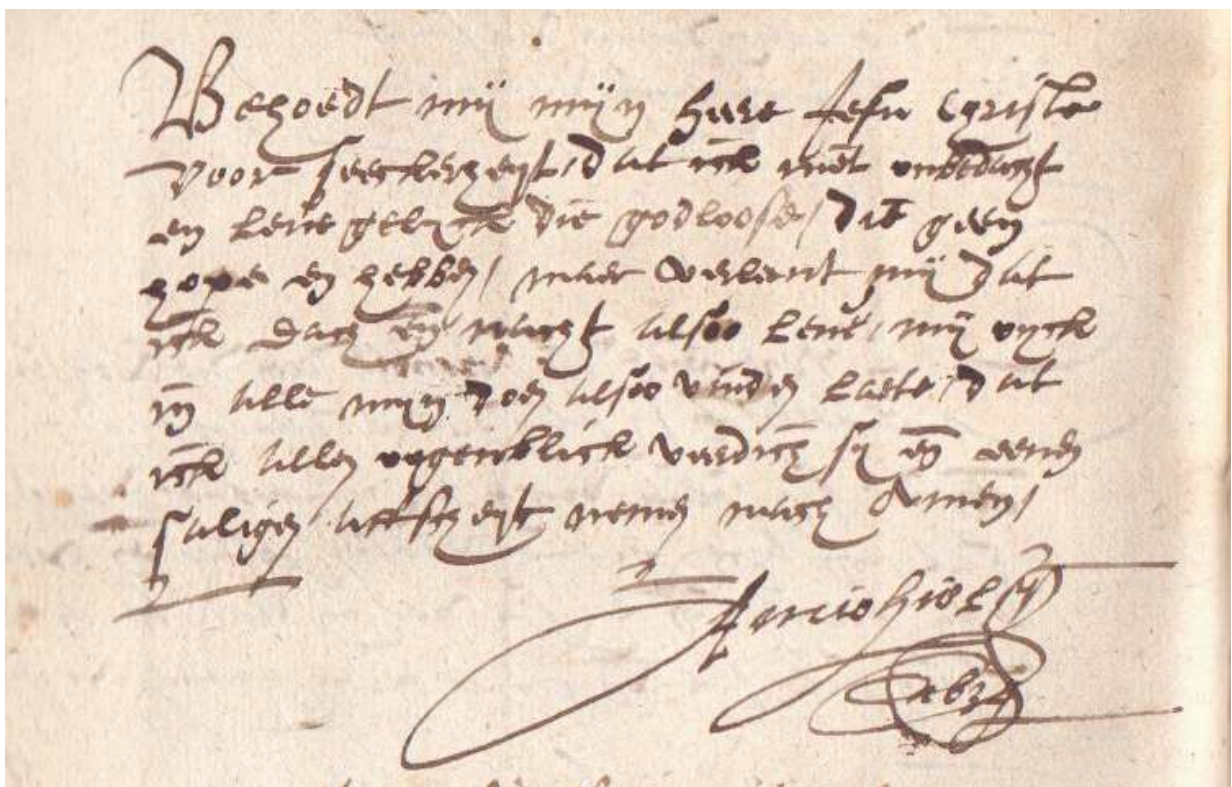 Behoedt mij mijn heere Jesu Christe
voor seeckerheyt, dat ick niet onbedacht
en leve gelyck die godloose, die geen
hope en hebben, maer verleent mij dat
ick dach en nacht alsoo leve, mij oyck
in alle mijn doen alsoo vinden laete, dat
ick allen ogenblick veerdich sy en eenen
saligen affscheyt nemen mach Amen,